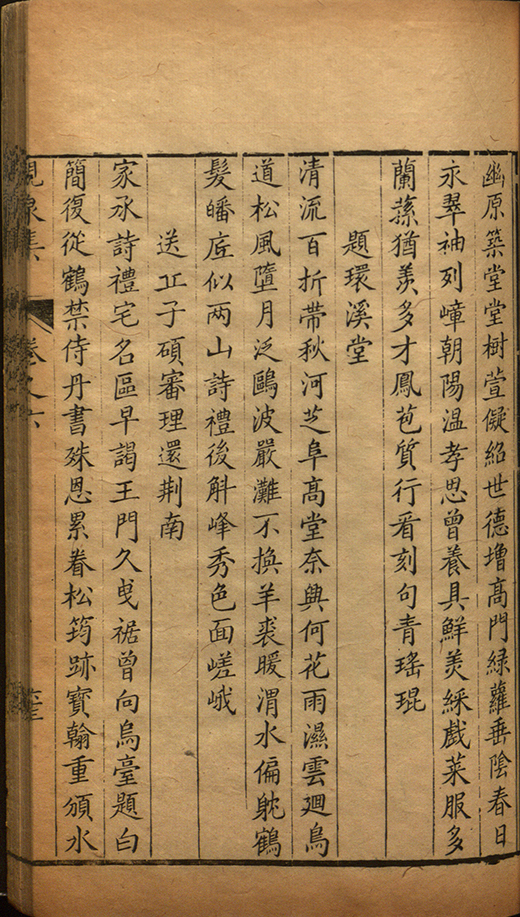 幽原築堂堂樹萱儗紹世德增高門綠蘿垂陰春日
永翠袖列嶂朝陽溫孝思曾養具鮮羙綵戲萊服多
蘭蓀猶羨多才鳳芭質行看刻句青瑤琨
題環溪堂
清流百折帶秋河芝阜高堂奈興何花雨濕雲廻鳥
道松風墮月泛鷗波嚴灘不換羊裘暖渭水偏躭鶴
髮皤庢似两山詩禮後斛峰秀色面嵯峨
送丘子碩審理還荆南
家承詩禮宅名區早謁王門久曳裾曾向烏臺題白
簡復從鶴禁侍丹書殊恩累眷松筠跡寶翰重頒水
卷之六